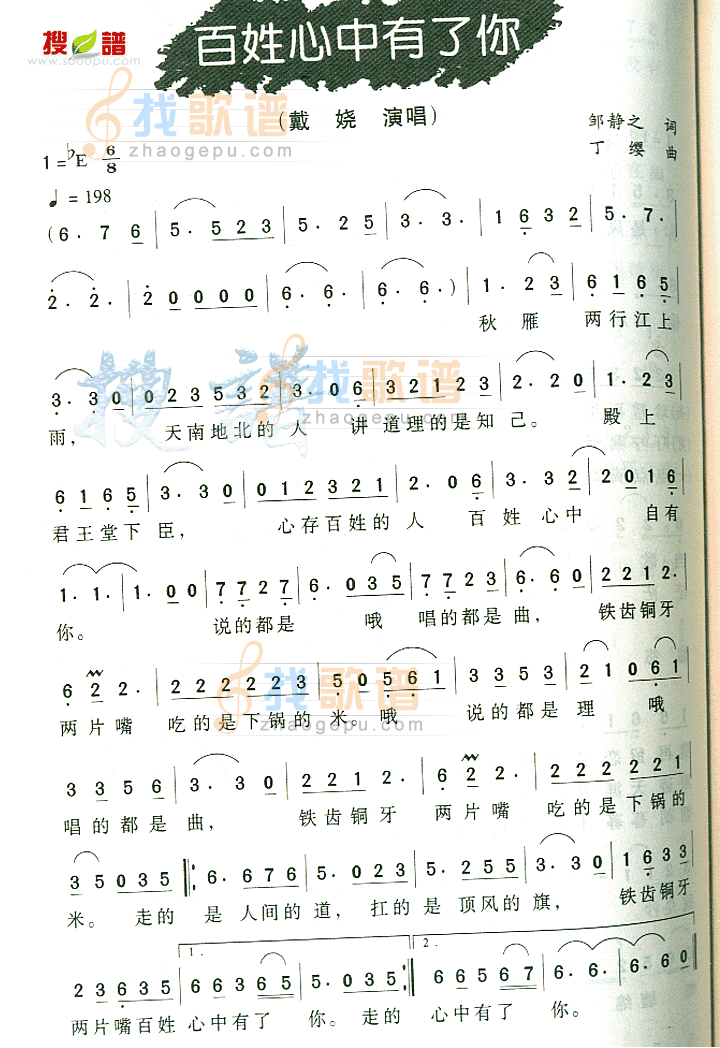 搜谱
www.sooopu.com
百姓心中有了你
找歌谱
zhaogepu.com
(戴娆 演唱)
邹静之 词
丁缨 曲
1=♭E 6/8
♩=198
(6·76 | 5·523 | 5·25 | 3·3· | 1632 | 5·7·
2·2· | 20000 | 6·6· | 6·6·) | 1·23 | 6165
秋雁 两行江上
3·30 | 023532 | 3·06 | 32123 | 2·20 | 1·23
雨, 天南地北的人 讲道理的是知己。 殿上
6165 | 3·30 | 012321 | 2·06 | 3·32 | 2016
君王堂下臣, 心存百姓的人 百姓心中 自有
1·1· | 1·00 | 7727 | 6·035 | 7727 | 6·60 | 2212·
你。 说的都是 哦 唱的都是曲, 铁齿铜牙
622· | 222223 | 50561 | 3353 | 21061
两片嘴 吃的是下锅的米。哦 说的都是理 哦
3356 | 3·30 | 2212· | 622· | 222221
唱的都是曲, 铁齿铜牙 两片嘴 吃的是下锅的
35035 | 6·676 | 5·035 | 5·255 | 3·30 | 1633
米。 走的是人间的道, 扛的是顶风的旗, 铁齿铜牙
1.
2.
23635 | 66365 | 5·035 | 66567 | 5·6· | 6·60
两片嘴百姓心中有了 你。走的 心中有了 你。
找歌谱
zhaogepu.com
找歌谱
zhaogepu.com